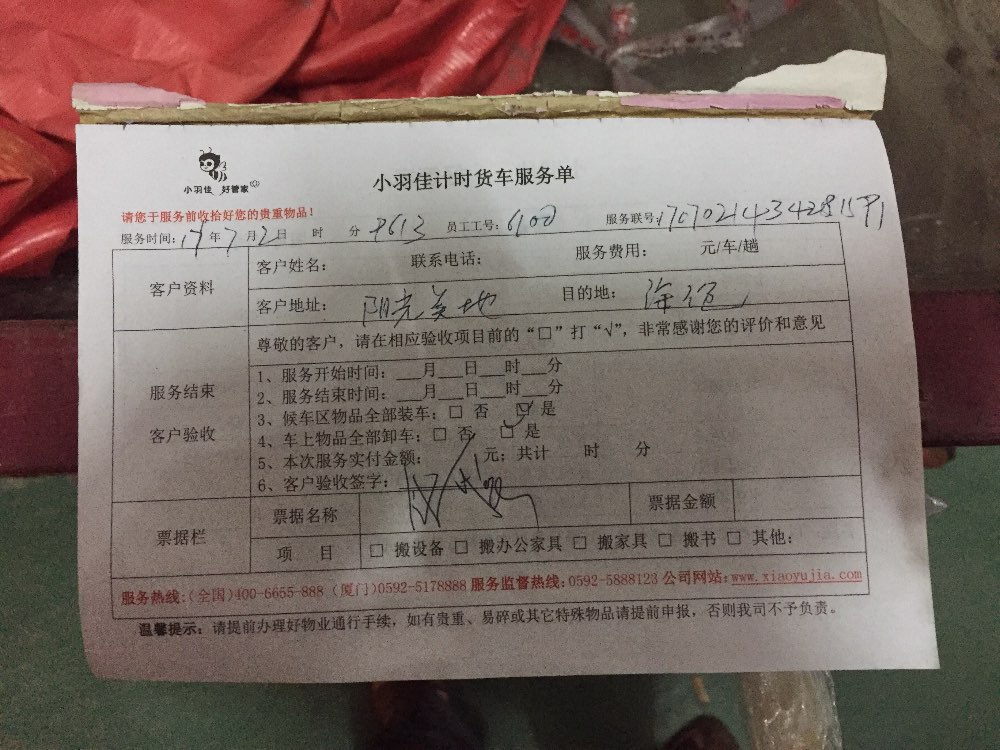 小羽佳 好管家
小羽佳计时货车服务单
请您于服务前收拾好您的贵重物品！
服务时间：17年7月2日 时 分 8613 员工工号：6100 服务联号：
客户资料
客户姓名： 联系电话： 服务费用： 元/车/趟
客户地址：阳光美地 目的地：海沧
服务结束
客户验收
尊敬的客户，请在相应验收项目前的“□”打“√”，非常感谢您的评价和意见
1、服务开始时间：___月___日___时___分
2、服务结束时间：___月___日___时___分
3、候车区物品全部装车：□ 否 □ 是
4、车上物品全部卸车：□ 否 □ 是
5、本次服务实付金额： 元；共计 时 分
6、客户验收签字：
票据栏
票据名称 票据金额
项 目 □ 搬设备 □ 搬办公家具 □ 搬家具 □ 搬书 □ 其他：
服务热线：(全国)400-6655-888 (厦门)0592-5178888 服务监督热线：0592-5888123 公司网站：www.xiaoyujia.com
温馨提示：请提前办理好物业通行手续，如有贵重、易碎或其它特殊物品请提前申报，否则我司不予负责。